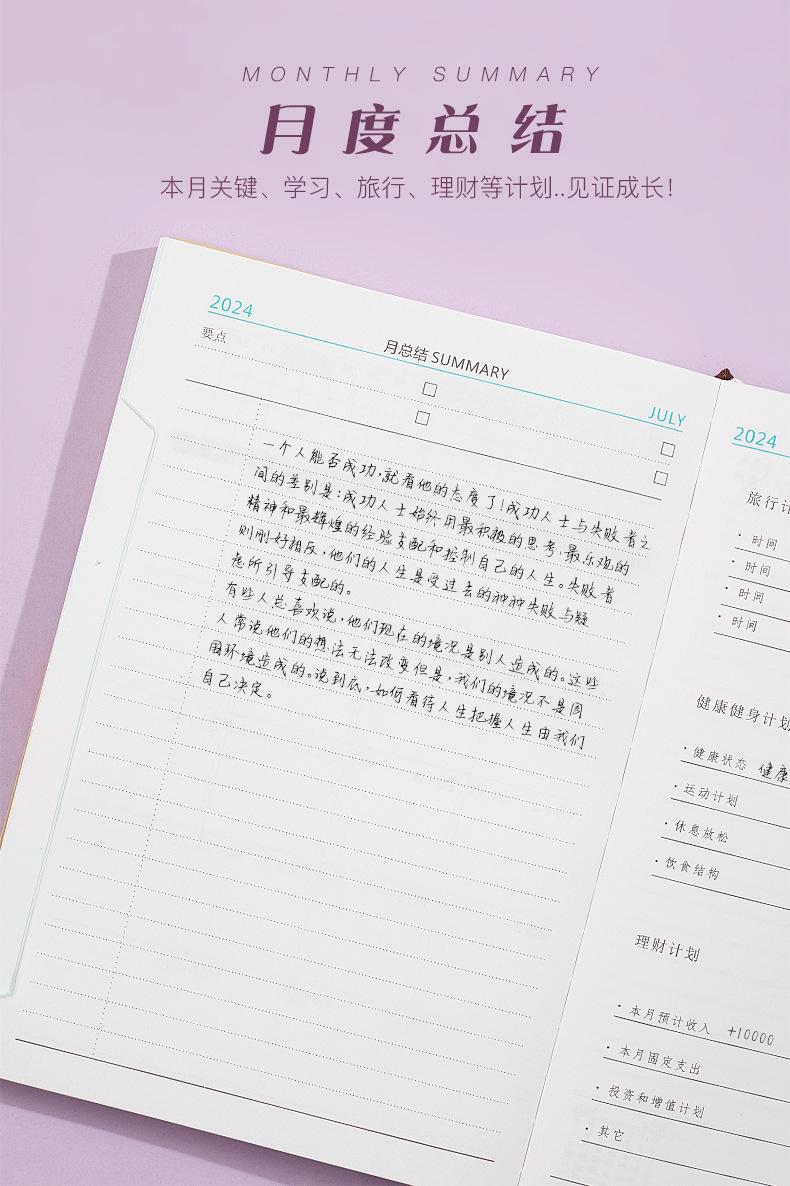 MONTHLY SUMMARY
月度总结
本月关键、学习、旅行、理财等计划..见证成长！
2024
要点
月总结 SUMMARY
JULY
一个人能否成功,就看他的态度了!成功人士与失败者之
间的差别是:成功人士始终用最积极的思考,最乐观的
精神和最辉煌的经验支配和控制自己的人生。失败者
则刚好相反,他们的人生是受过去的种种失败与疑
虑所引导支配的。
有些人总喜欢说,他们现在的境况是别人造成的。这些
人常说他们的想法无法改变但是,我们的境况不是周
围环境造成的。说到底,如何看待人生把握人生由我们
自己决定。
2024
旅行计
·时间
·时间
·时间
·时间
健康健身计划
·健康状态 健康
·运动计划
·休息放松
·饮食结构
理财计划
·本月预计收入 +10000
·本月固定支出
·投资和增值计划
·其它